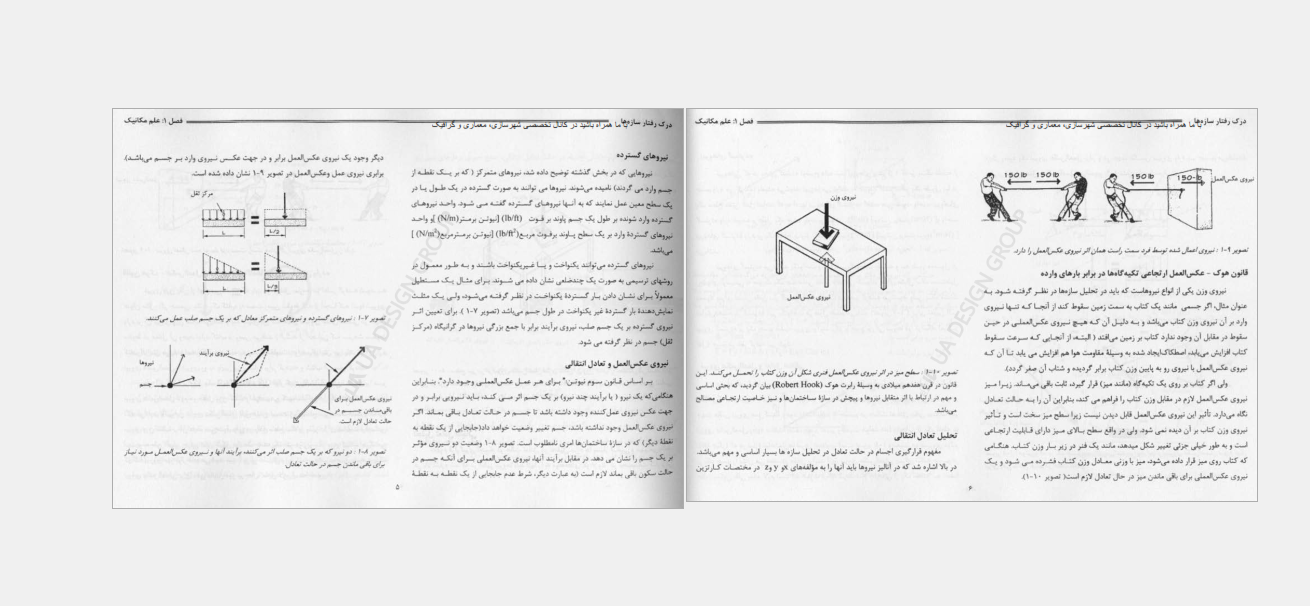 درک رفتار سازه‌ها
فصل ۱: علم مکانیک
با ما همراه باشید در کانال تخصصی شهرسازی، معماری و گرافیک
نیروهای گسترده
نیروهایی که در بخش گذشته توضیح داده شد، نیروهای متمرکز ( که بر یک نقطه از
جسم وارد می گردند) نامیده می‌شوند. نیروها می توانند به صورت گسترده در یک طول یا در
یک سطح معین عمل نمایند که به آنها نیروهای گسترده گفته می شود. واحد نیروهای
گسترده وارد شونده بر طول یک جسم پاوند بر فوت (lb/ft) [نیوتن برمتر(N/m) ]و واحد
نیروهای گستردهٔ وارد بر یک سطح پاوند برفوت مربع(lb/ft²) [نیوتن برمترمربع(N/m²) ]
می‌باشد.
نیروهای گسترده می‌توانند یکنواخت و یا غیریکنواخت باشند و به طور معمول در
روشهای ترسیمی به صورت یک چندضلعی نشان داده می شوند. برای مثال یک مستطیل
معمولاً برای نشان دادن بار گستردهٔ یکنواخت در نظر گرفته می‌شود، ولی یک مثلث
نمایش‌دهندهٔ بار گستردهٔ غیر یکنواخت در طول جسم می‌باشد (تصویر ۷-۱ ). برای تعیین اثر
نیروی گسترده بر یک جسم صلب، نیروی برآیند برابر با جمع بزرگی نیروها در گرانیگاه (مرکز
ثقل) جسم در نظر گرفته می شود.
نیروی عکس‌العمل و تعادل انتقالی
بر اساس قانون سوم نیوتن" برای هر عمل عکس‌العملی وجود دارد". بنابراین
هنگامی‌که یک نیرو ( یا برآیند چند نیرو) بر یک جسم اثر می کند، باید نیرویی برابر و در
جهت عکس نیروی عمل‌کننده وجود داشته باشد تا جسم در حالت تعادل باقی بماند. اگر
نیروی عکس‌العمل وجود نداشته باشد، جسم تغییر وضعیت خواهد داد(جابجایی از یک نقطه به
نقطهٔ دیگر) که در سازهٔ ساختمان‌ها امری نامطلوب است. تصویر ۸-۱ وضعیت دو نیروی مؤثر
بر یک جسم را نشان می دهد. در مقابل برآیند آنها، نیروی عکس‌العملی برای آنکه جسم در
حالت سکون باقی بماند لازم است (به عبارت دیگر، شرط عدم جابجایی از یک نقطه به نقطهٔ
دیگر وجود یک نیروی عکس‌العمل برابر و در جهت عکس نیروی وارد بر جسم می‌باشد).
برابری نیروی عمل وعکس‌العمل در تصویر ۹-۱ نشان داده شده است.
مرکز ثقل
L
L/2
L
L/3
تصویر ۷-۱ : نیروهای گسترده و نیروهای متمرکز معادل که بر یک جسم صلب عمل می‌کنند.
نیروها
جسم
نیروی برآیند
نیروی عکس‌العمل برای
باقی‌ماندن جسم در
حالت تعادل لازم است.
تصویر ۸-۱ : دو نیرو که بر یک جسم صلب اثر می‌کنند، برآیند آنها و نیروی عکس‌العمل مورد نیاز
برای باقی ماندن جسم در حالت تعادل.
۵
UA DESIGN GROUP
درک رفتار سازه‌ها
فصل ۱: علم مکانیک
با ما همراه باشید در کانال تخصصی شهرسازی، معماری و گرافیک
150 lb
150 lb
150 lb
150 lb
نیروی عکس‌العمل
تصویر ۹-۱ : نیروی اعمال شده توسط فرد سمت راست همان اثر نیروی عکس‌العمل را دارد.
قانون هوک - عکس‌العمل ارتجاعی تکیه‌گاه‌ها در برابر بارهای وارده
نیروی وزن یکی از انواع نیروهاست که باید در تحلیل سازه‌ها در نظر گرفته شود. به
عنوان مثال، اگر جسمی مانند یک کتاب به سمت زمین سقوط کند، از آنجا که تنها نیروی
وارد بر آن نیروی وزن کتاب می‌باشد و به دلیل آن که هیچ نیروی عکس‌العملی در حین
سقوط در مقابل آن وجود ندارد کتاب بر زمین می‌افتد ( البته، از آنجایی که سرعت سقوط
کتاب افزایش می‌یابد، اصطکاک‌ایجاد شده به وسیلهٔ مقاومت هوا هم افزایش می یابد تا آن که
نیروی عکس‌العمل با نیروی رو به پایین وزن کتاب برابر گردیده و شتاب آن صفر گردد).
ولی اگر کتاب بر روی یک تکیه‌گاه (مانند میز) قرار گیرد، ثابت باقی می‌ماند. زیرا میز
نیروی عکس‌العمل لازم در مقابل وزن کتاب را فراهم می کند، بنابراین آن را به حالت تعادل
نگاه می‌دارد. تأثیر این نیروی عکس‌العمل قابل دیدن نیست زیرا سطح میز سخت است و تأثیر
نیروی وزن کتاب بر آن دیده نمی شود. ولی در واقع سطح بالای میز دارای قابلیت ارتجاعی
است و به طور خیلی جزئی تغییر شکل میدهد، مانند یک فنر در زیر بار وزن کتاب. هنگامی
که کتاب روی میز قرار داده می‌شود، میز با وزنی معادل وزن کتاب فشرده می شود و یک
نیروی عکس‌العملی برای باقی ماندن میز در حال تعادل لازم است( تصویر ۱۰-۱).
نیروی وزن
نیروی عکس‌العمل
تصویر ۱۰-۱ : سطح میز در اثر نیروی عکس‌العمل فنری شکل آن وزن کتاب را تحمل می‌کند. این
قانون در قرن هفدهم میلادی به وسیلهٔ رابرت هوک (Robert Hook) بیان گردید، که بحثی اساسی
و مهم در ارتباط با اثر متقابل نیروها و پیچش در سازهٔ ساختمان‌ها و نیز خاصیت ارتجاعی مصالح
می‌باشد.
تحلیل تعادل انتقالی
مفهوم قرارگیری اجسام در حالت تعادل در تحلیل سازه ها بسیار اساسی و مهم می‌باشد.
در بالا اشاره شد که در آنالیز نیروها باید آنها را به مؤلفه‌های x، y و z در مختصات کارتزین
۶
UA DESIGN GROUP